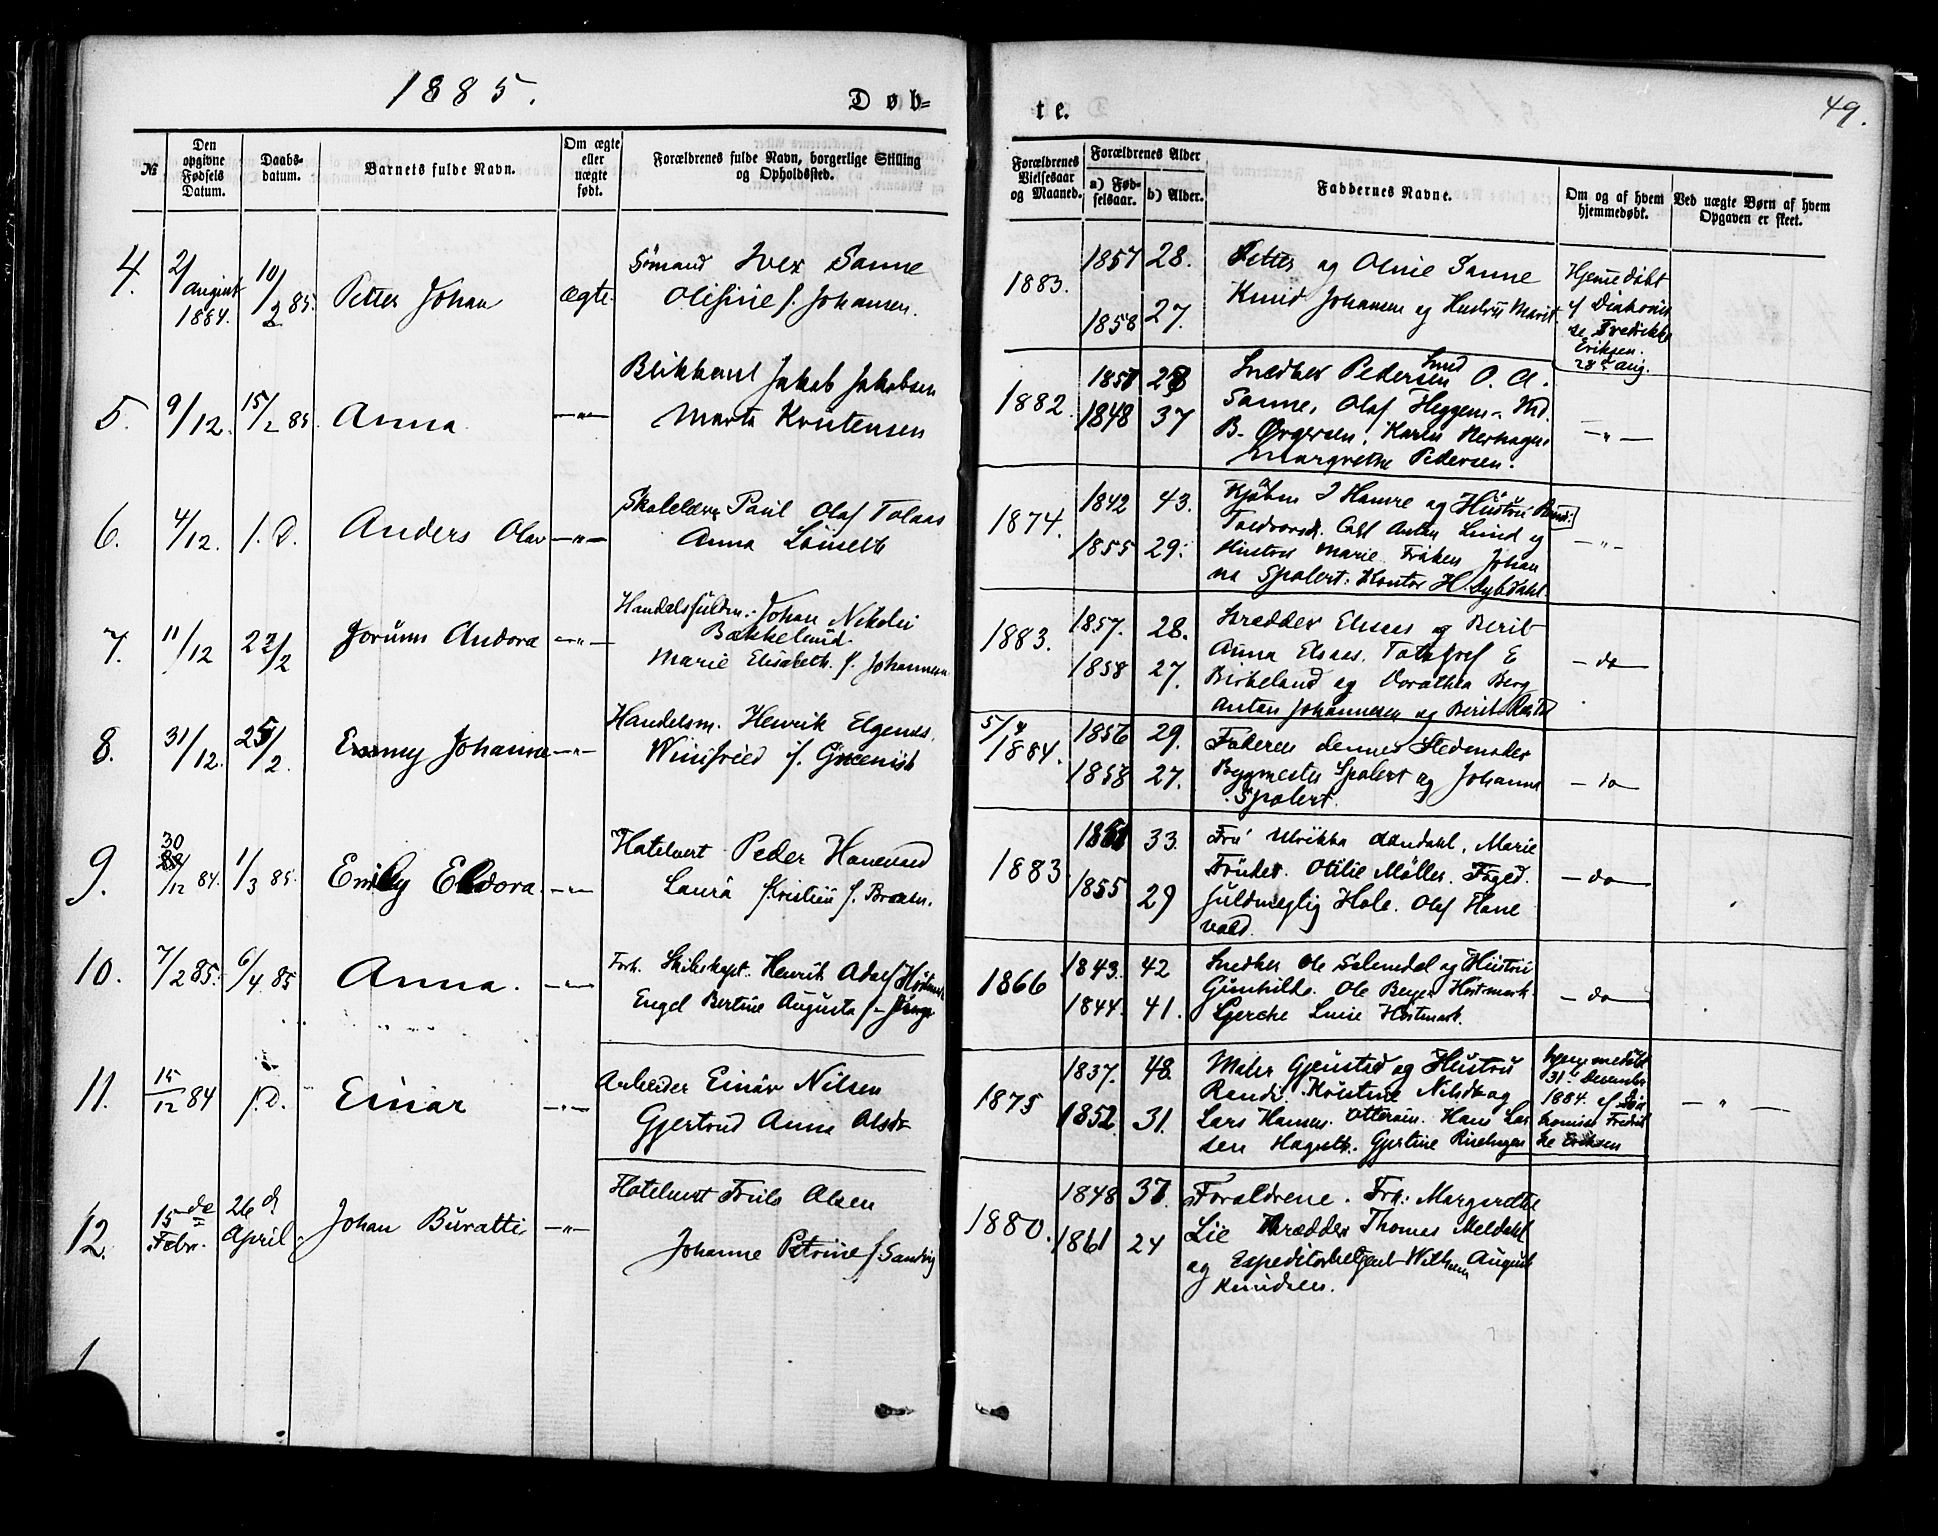 1885.
Døb-
te.
49.
№
Den opgivne Fødsels Datum.
Daabs-datum.
Barnets fulde Navn.
Om ægte eller uægte født.
Forældrenes fulde Navn, borgerlige Stilling og Opholdssted.
Forældrenes Vielsesaar og Maaned.
Forældrenes Alder
a) Fød-selsaar.
b) Alder.
Faddernes Navne.
Om og af hvem hjemmedøbt.
Ved uægte Børn af hvem Opgaven er skeet.
4.
2/ august 1884.
10/2 85.
Petter Johan
ægte.
Sømand Iver Sanne
Olifine f. Johansen.
1883.
1857 28.
1858 27.
Petter og Oline Sanne
Knud Johansen og Hustru Marit
Hjemedøbt
af Diakonis
se Fredrikke
Eriksen.
28de aug.
5.
9/12.
15/2 85.
Anna
—"—
Jakob Jakobsen
Marta Kristensen
1882.
1848 37
Snedker Pedersen O. A.
Sanne, Olaf Heggem
B. Ørgersen, Karen
Margrethe Pedersen.
—"—
6.
4/12.
f. D.
Anders Olav
—"—
Skolelærer Paul Olaf Tolaas
Anna Lønseth
1874.
1842 43.
1855 29.
Kjøbm I Hamre og Hustru
Carl Anton Lund og
Hustru Marie. Frøken Johan
na Spolert. Kontor H. Dybdahl.
—"—
7.
11/12
22/2
Jorunn Andora
—"—
Handelsfuldm. Johan Nikolai
Bækkelund.
Marie Elisabeth f. Johannesen
1883.
1857. 28.
1858 27.
Skrædder Elsaas og Berit
Anna Elsaas. Fotograf E
Birkeland og Dorothea Berg
Anton Johannesen og Berit
— do —
8.
31/12.
25/2.
Emmy Johanne
—"—
Handelsm. Henrik Elgenes.
Winifried f.
5/4 1884.
1856 29.
1858 27.
Faderen dennes Stedmoder
Bygmester Spolert og Johanna
Spolert.
— do —
9.
30/12 84.
1/3 85.
Emily Eldora.
—"—
Hotelvert Peder Hanevold
Laura Kristine f.
1883
33.
1855 29
Fru Ulrikka Marie
Otilie Møller. Foged
fuldmegtig Hole. Olaf Hane
vold.
— do —
10.
7/2 85.
6/4 85
Anna.
—"—
Forh. Skibskapt. Henrik Adolf Høstmark
Engel Bertine Augusta f.
1866
1843. 42
1844. 41.
Snedker Ole Solemdal og Hustru
Gunhild. Ole Beyer Høstmark.
Gerche Luise Høstmark.
— do —
11.
15/12 84
f. D.
Einar
—"—
Arbeider Einar Nilsen
Gjertrud Anna
1875
1837. 48.
1852. 31.
Maler Gjenstad og Hustru
Randi. Kristine
Lars Hansen Otterøien. Hans Lar
sen Hagseth. Gjertine
hjemmedøbt
31te Desember
1884. af Dia
konisse Fredrik
ke Eriksen
— " —
12.
15de Febr.
26d April.
Johan Buratti
—"—
Hotelvert Truls Olsen
Johanne Petrine f. Sandvig
1880.
1848 37
1861 24
Forældrene. Frk: Margrethe
Lie Skrædder Thomas Meldahl
og Expeditør Wilhelm August
Knudsen.
1